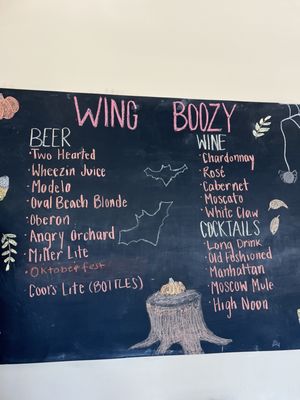 WING BOOZY
BEER
· Two Hearted
· Wheezin Juice
· Modelo
· Oval Beach Blonde
· Oberon
· Angry Orchard
· Miller Lite
· Oktoberfest
Coors Lite (BOTTLES)
WINE
· Chardonnay
· Rosé
· Cabernet
· Moscato
· White Claw
COCKTAILS
· Long Drink
· Old Fashioned
· Manhattan
· Moscow Mule
· High Noon